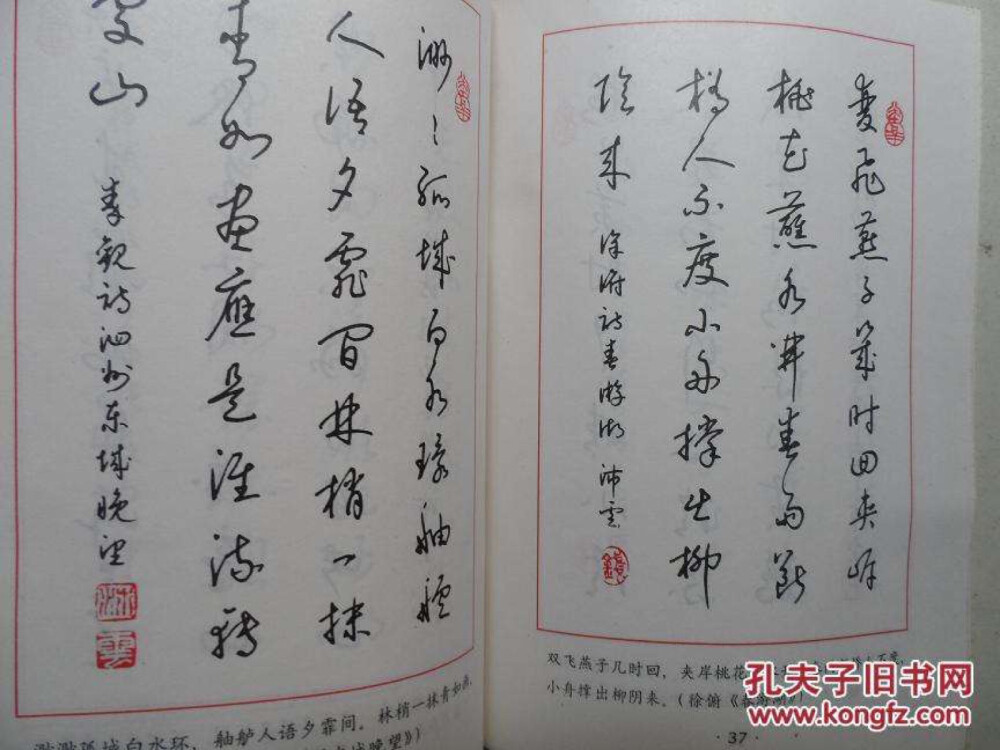 渺渺孤城白水環舳艫
人语夕霏间林梢一抹
青如画應是淮流转
處山
秦觀诗泗州东城晚望
沛雲
渺渺孤城白水环，舳舻人语夕霏间。林梢一抹青如画，
东城晚望》）
雙飛燕子幾时回夾岸
桃花蘸水開春雨斷
橋人不度小舟撑出柳
陰来
徐俯诗春游湖 沛雲
双飞燕子几时回，夹岸桃花
人不度，
小舟撑出柳阴来。（徐俯《春游湖》）
·37·
孔夫子旧书网
www.kongfz.com